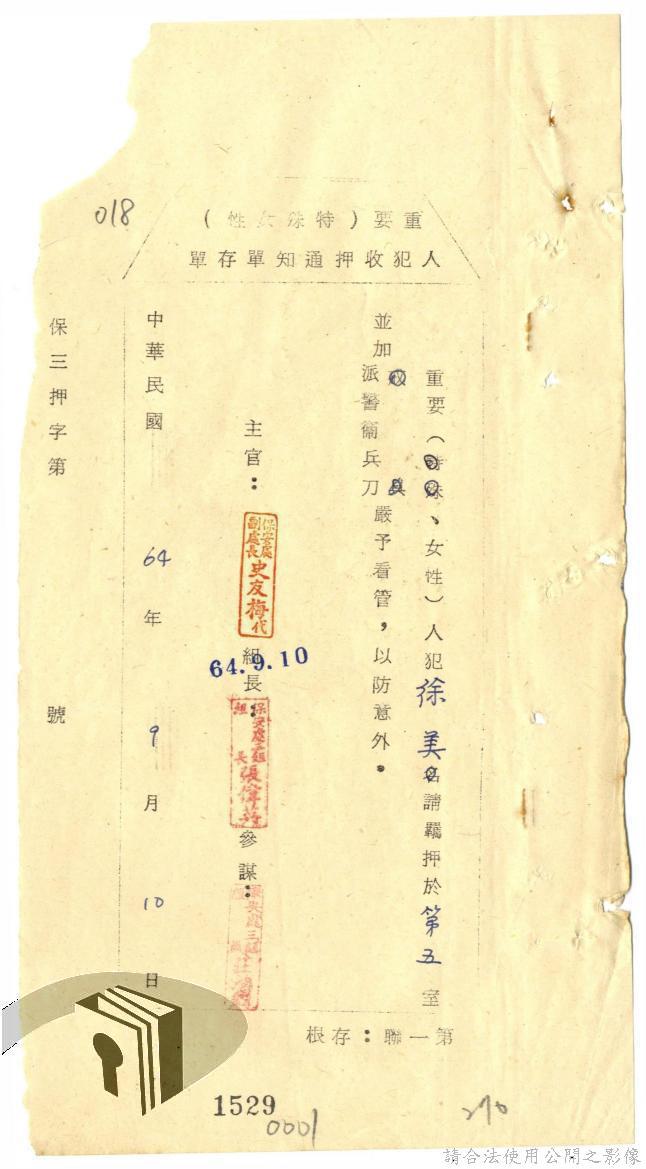 018
重要(特殊女性)
人犯收押通知單存單
重要(特殊、女性)人犯徐美名請羈押於第五室
並加派警衞兵刀具嚴予看管,以防意外。
主官:
保安處
副處長
史友梅代
64.9.10
組長:
保安處三組
組長
張
參謀:
保安處三組
中華民國64年9月10日
保三押字第 號
第一聯:存根
1529
0001
270
請合法使用公開之影像